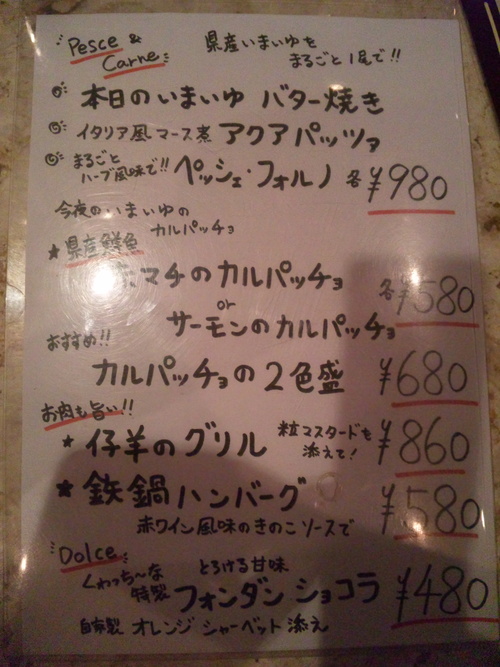 Pesce &
Carne
県産いまいゆを
まるごと1尾で!!
本日のいまいゆ バター焼き
イタリア風マース煮 アクアパッツァ
まるごと
ハーブ風味で!! ペッシェ・フォルノ 各 ¥980
今夜のいまいゆの
カルパッチョ
★ 県産鮮魚
マチのカルパッチョ 各¥580
or
サーモンのカルパッチョ
おすすめ!!
カルパッチョの2色盛 ¥680
お肉も旨い!!
★ 仔羊のグリル 粒マスタードを
添えて! ¥860
★ 鉄鍋ハンバーグ ¥580
赤ワイン風味のきのこソースで
Dolce
くわっち〜な
特製 とろける甘味
フォンダン ショコラ ¥480
自家製 オレンジ シャーベット 添え